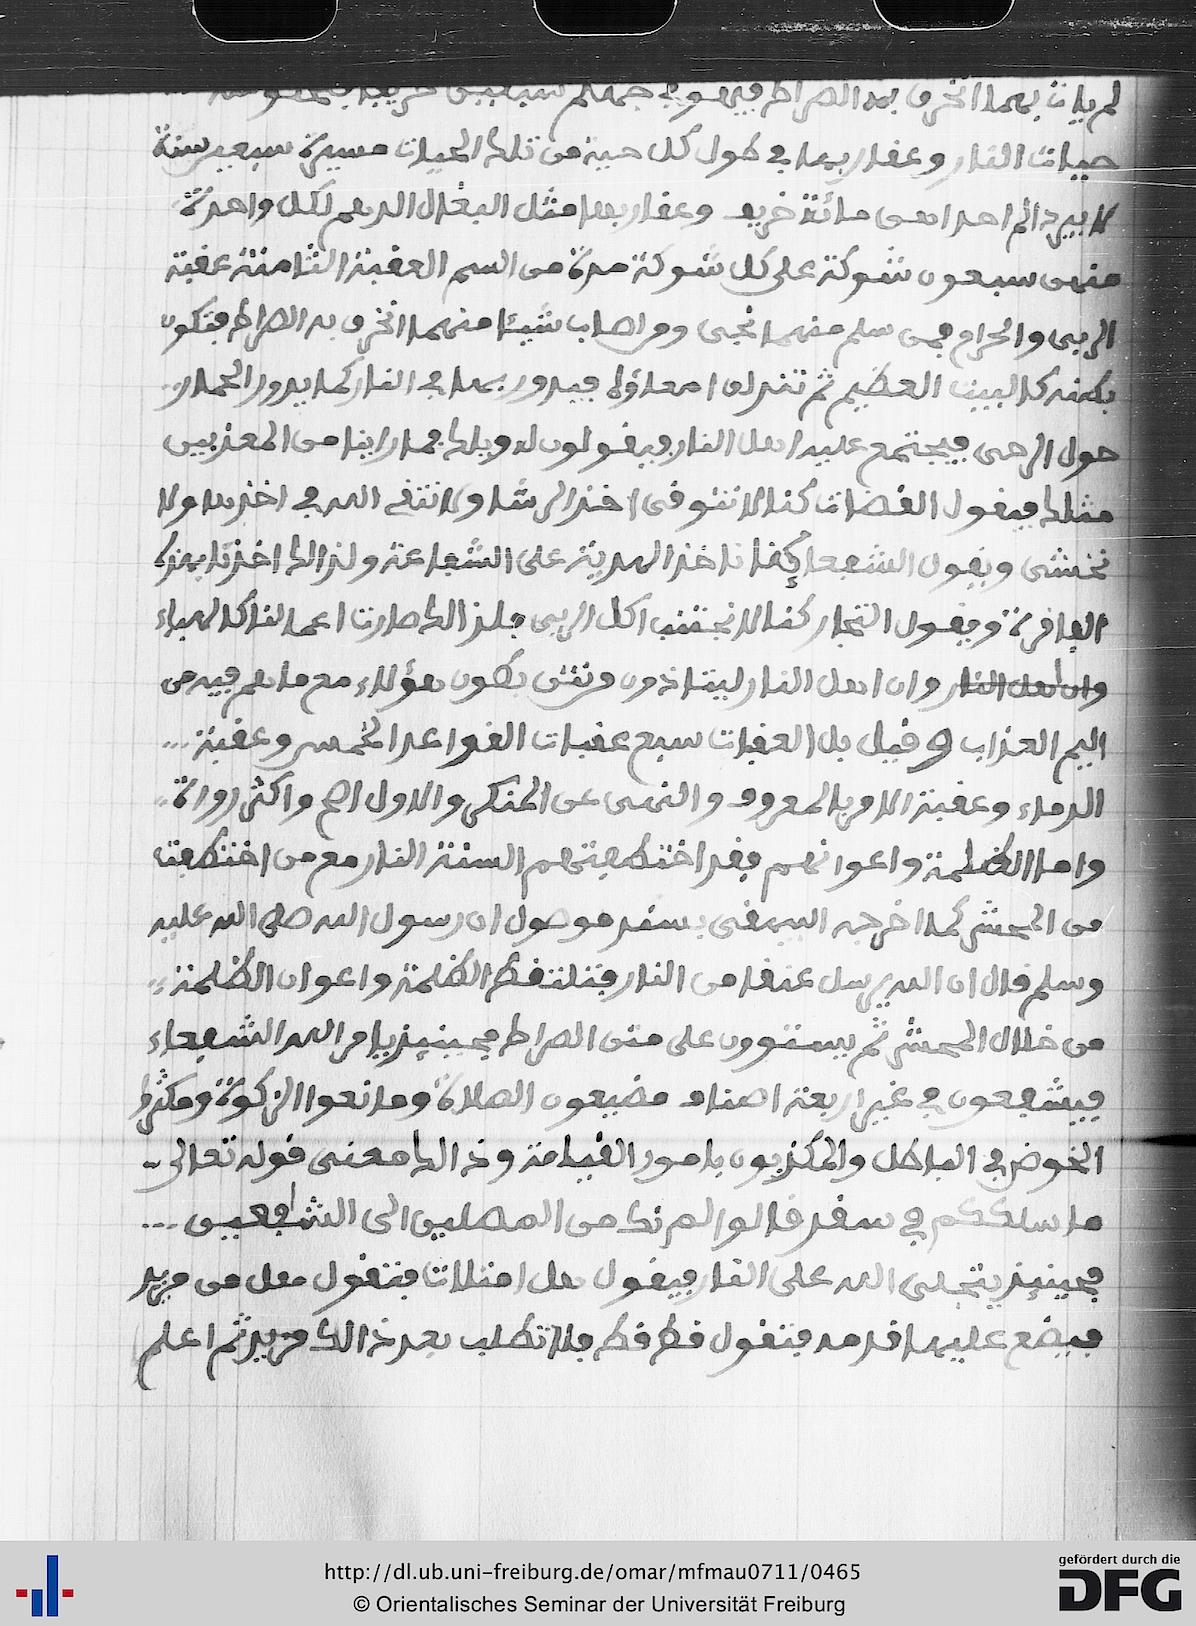 لم يات بهما انخرق به الصراط فيهوي في جهنم سبعين خريفا
حيات النار وعقاربها في طول كل حية من تلك الحيات مسيرة سبعين سنة
لا يبرد الم احداهن مائة خريف وعقاربها مثل البغال الدهم لكل واحدة
منهن سبعون شوكة على كل شوكة مدة من السم العقبة الثامنة عقبة
الربى والحرام فمن سلم منهما نجى ومن اصاب شيئا منهما انخرق به الصراط فتكون
بطنه كالبيت العظيم ثم تندلق امعاؤه فيدور بها في النار كما يدور الحمار
حول الرحى فيجتمع عليه اهل النار فيقولون له ويلك فما راينا من المعذبين
مثلك فيقول القضات كنا لا نتوقى اخذ الرشا ولا نتقي الله في اخذها ولا
نخشى ويقول الشفعا كنا ناخذ الهدية على الشفاعة ولذالك اخذنا بهذه
الفاقرة ويقول التجار كنا لا نجتنب اكل الربى فلذالك صارت اعمالنا كالهباء
وان اهل النار وان اهل النار ليتاذون من نتن بطون هؤلاء مع ما هم فيه من
اليم العذاب وقيل بل العقبات سبع عقبات القواعد الخمس وعقبة
الدماء وعقبة الامر بالمعروف والنهي عن المنكر والاول اصح واكثر رواة
واما الظلمة واعوانهم فقد اختطفتهم السنة النار مع من اختطفت
من المحشر كما اخرجه البيهقي بسند موصول ان رسول الله صلى الله عليه
وسلم قال ان الله يرسل عنقا من النار فتلتقط الظلمة واعوان الظلمة
من خلال المحشر ثم يستوون على متن الصراط فحينئذ يامر الله الشفعاء
فيشفعون في غير اربعة اصناف مضيعون الصلاة ومانعوا الزكوة ومكثروا
الخوض في الباطل والمكذبون بامور القيامة وذالك معنى قوله تعالى
ما سلككم في سقر قالوا لم نك من المصلين الى الشافعين
فحينئذ يتجلى الله على النار فيقول هل امتلات فتقول هل من مزيد
فيضع عليها قدمه فتقول قط قط فلا تطلب بعد ذالك مزيد ثم اعلم
http://dl.ub.uni-freiburg.de/omar/mfmau0711/0465
© Orientalisches Seminar der Universität Freiburg
gefördert durch die
DFG